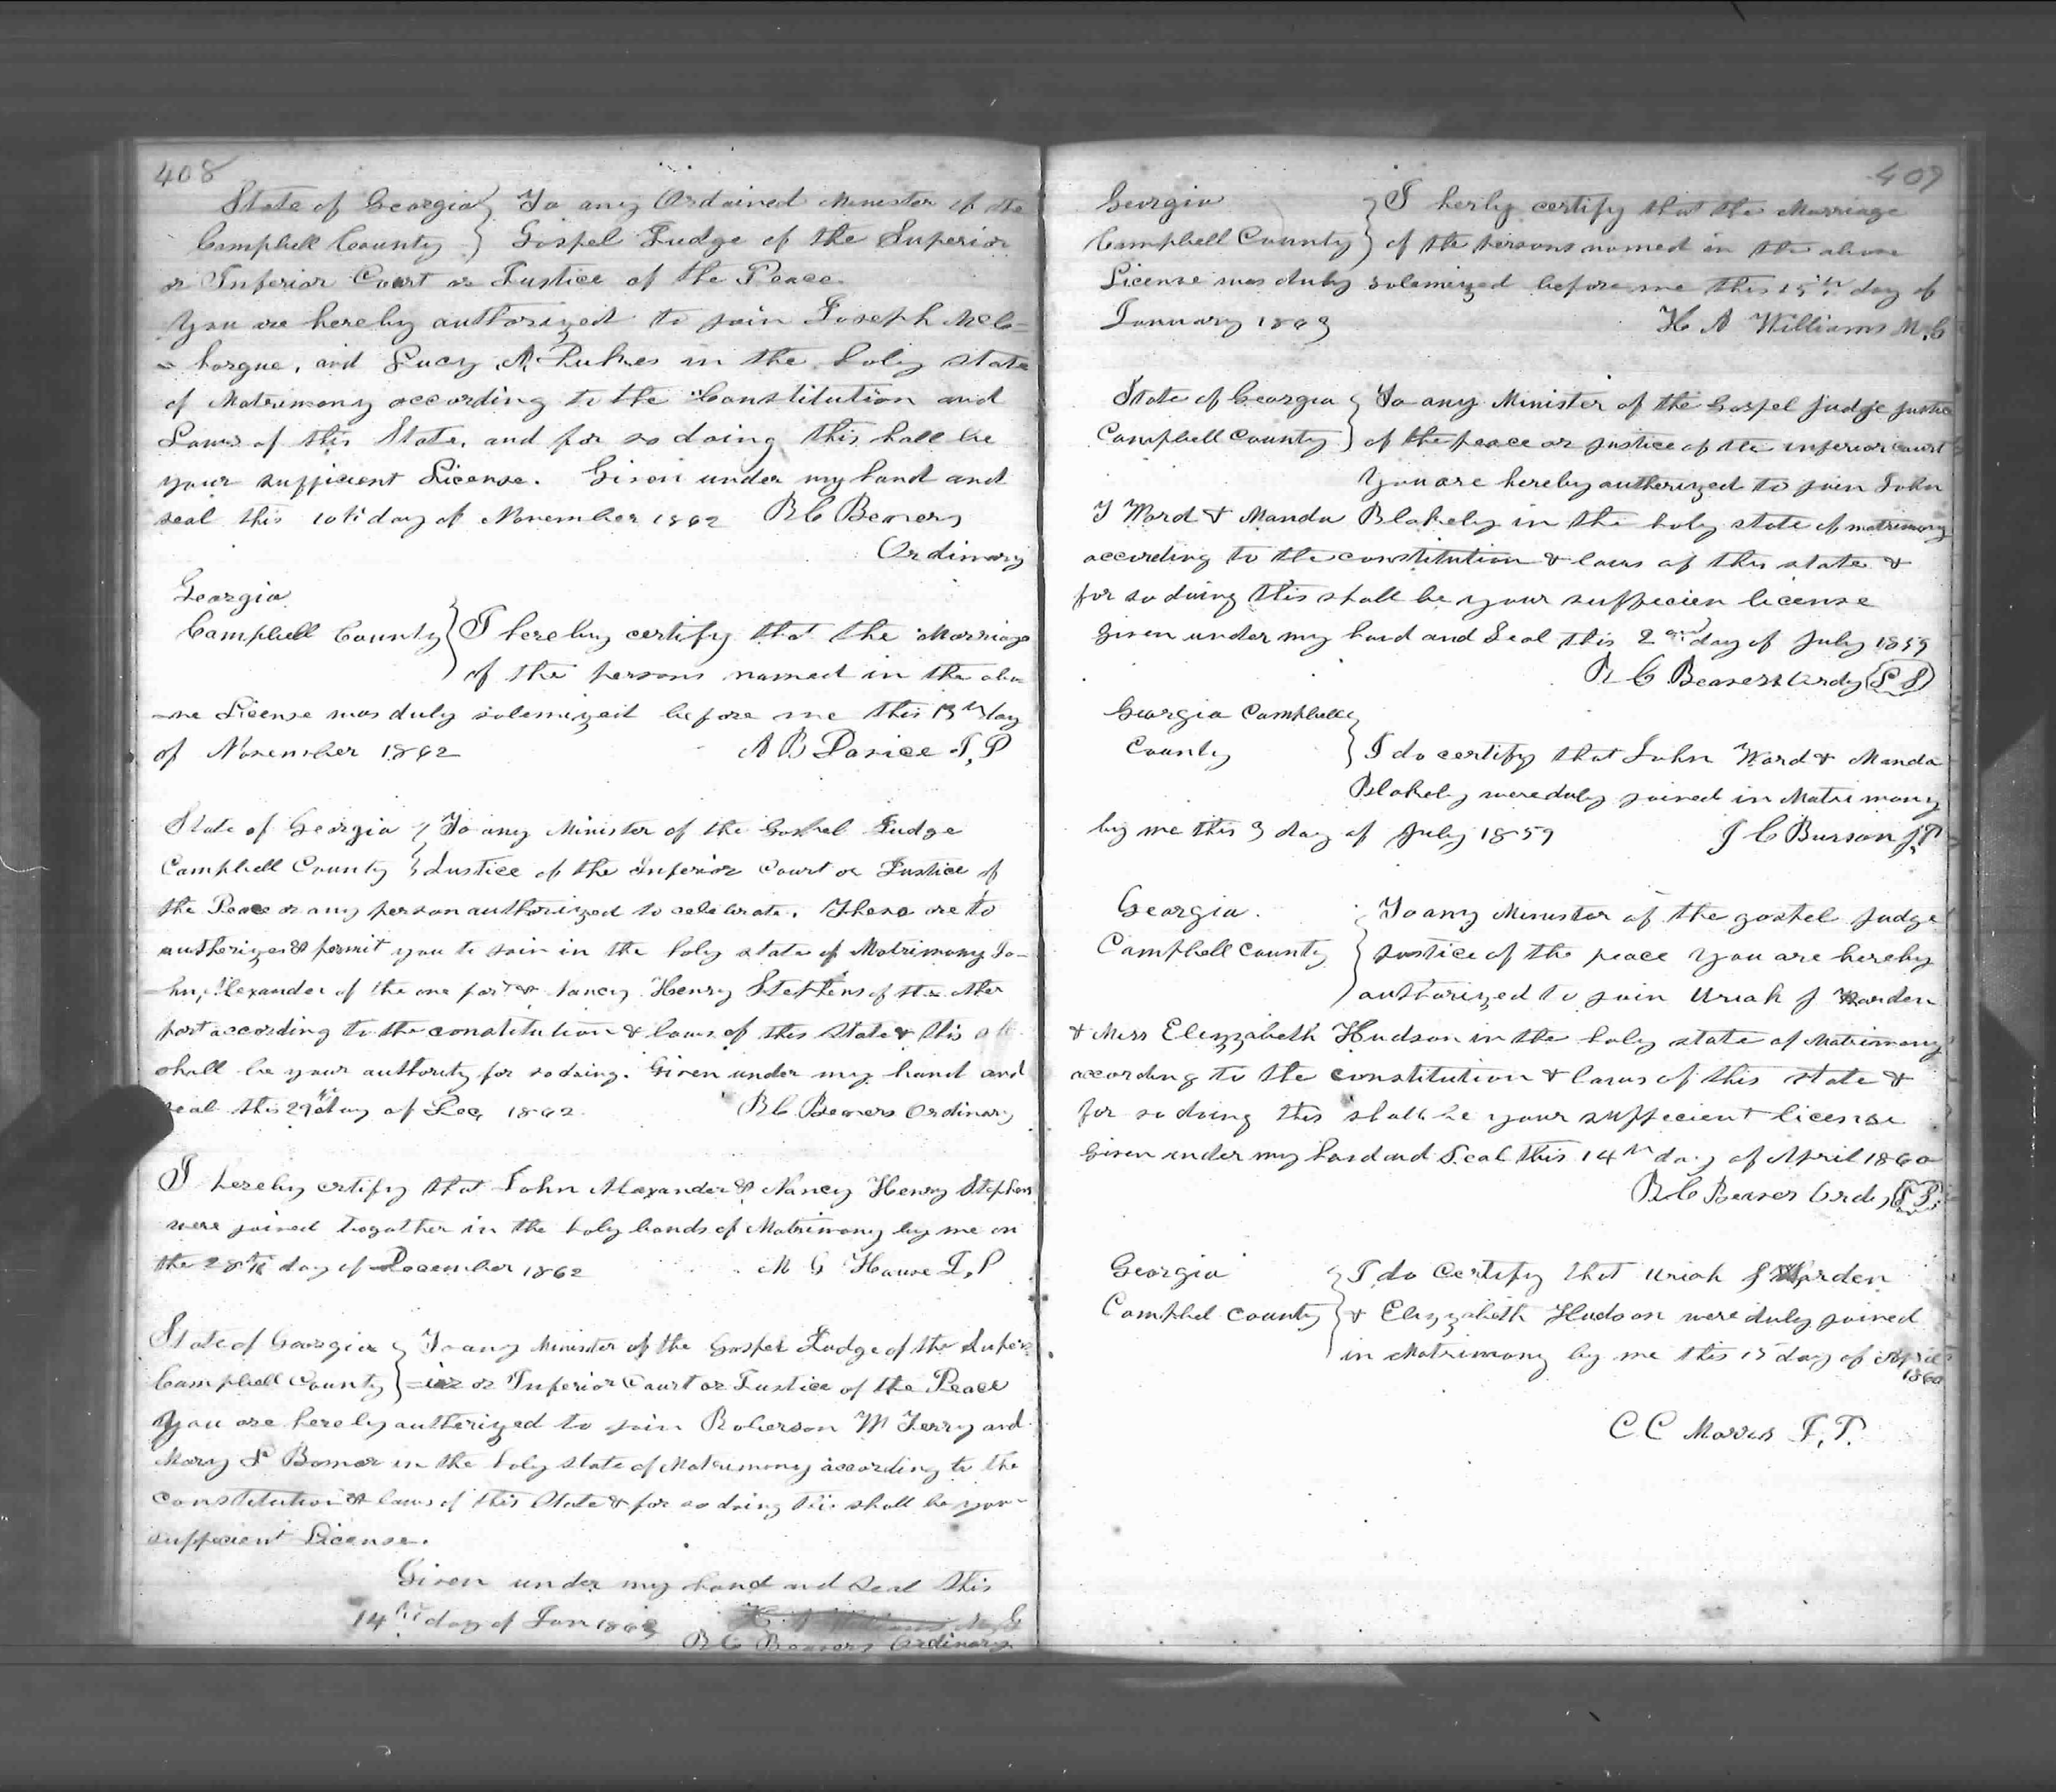 408
State of Georgia } To any Ordained Minister of the
Campbell County } Gospel Judge of the Superior
or Inferior Court or Justice of the Peace
You are hereby authorized to join Joseph McC=
= horgue, and Lucy A in the holy state
of Matrimony according to the Constitution and
Laws of this State, and for so doing this hall be
your sufficient License. Given under my hand and
seal this 10th day of November 1862 R C Beavers
Ordinary
Georgia
Campbell County } I hereby certify that the Marriage
of the persons named in the abo
-ve License was duly solemized before me this 13th day
of November 1862 A B J, P
State of Georgia } To any Minister of the Gospel Judge
Campbell County } Justice of the Inferior Court or Justice of
the Peace or any person authorized to celebrate. These are to
authorize & permit you to join in the holy state of Matrimony Jo-
-hn, Alexander of the one part & Nancy Henry Stephens of the other
part according to the constitution & laws of this State & this
shall be your authority for so doing. Given under my hand and
seal this 27th day of Dec, 1862. R C Beavers Ordinary
I hereby certify that John Alexander & Nancy Henry Stephens
were joined togather in the holy bands of Matrimony by me on
the 28th day of December 1862 M G House J, P
State of Georgia } To any Minister of the Gospel Judge of the Super=
Campbell County } =ior or Inferior Court or Justice of the Peace
You are hereby authorized to join Roberson W Terry and
Mary S Bomar in the holy state of Matrimony according to the
constitution & laws of this State & for so doing this shall be your
sufficient License.
Given under my hand and seal this
14th day of Jan 1863 H A Williams M, G
R C Beavers Ordinary
409
Georgia } I herby certify that the Marriage
Campbell County } of the persons named in the above
License was duly solemized before me this 15th day of
January 1863 H A Williams M, G
State of Georgia } To any Minister of the Gospel judge justice
Campbell County } of the peace or justice of the inferior court
You are hereby authorized to join John
T Word & Manda Blakely in the holy state of matrimony
according to the constitution & laws of this state &
for so doing this shall be your suffecien license
given under my hand and Seal this 2nd day of July 1859
R C Beavers Ordy L S
Georgia Campbell }
County } I do certify that John Word & Manda
Blakely were duly joined in Matrimony
by me this 3 day of July 1859 J C Burson J, P
Georgia. } To any Minister of the gospel judge
Campbell County } justice of the peace you are hereby
authorized to join Uriah J Warden
& Miss Elizzabeth Hudson in the holy state of Matrimony
according to the constitution & laws of this state &
for so doing this shall be your suffecient license
Given under my hand and Seal this 14th day of April 1860
R C Beaver Ordy L S
Georgia } I do certify that Uriah J Warden
Camphel county } & Elizzabeth Hudson were duly joined
in Matrimony by me this 15 day of April
1860
C C Morris J, P.